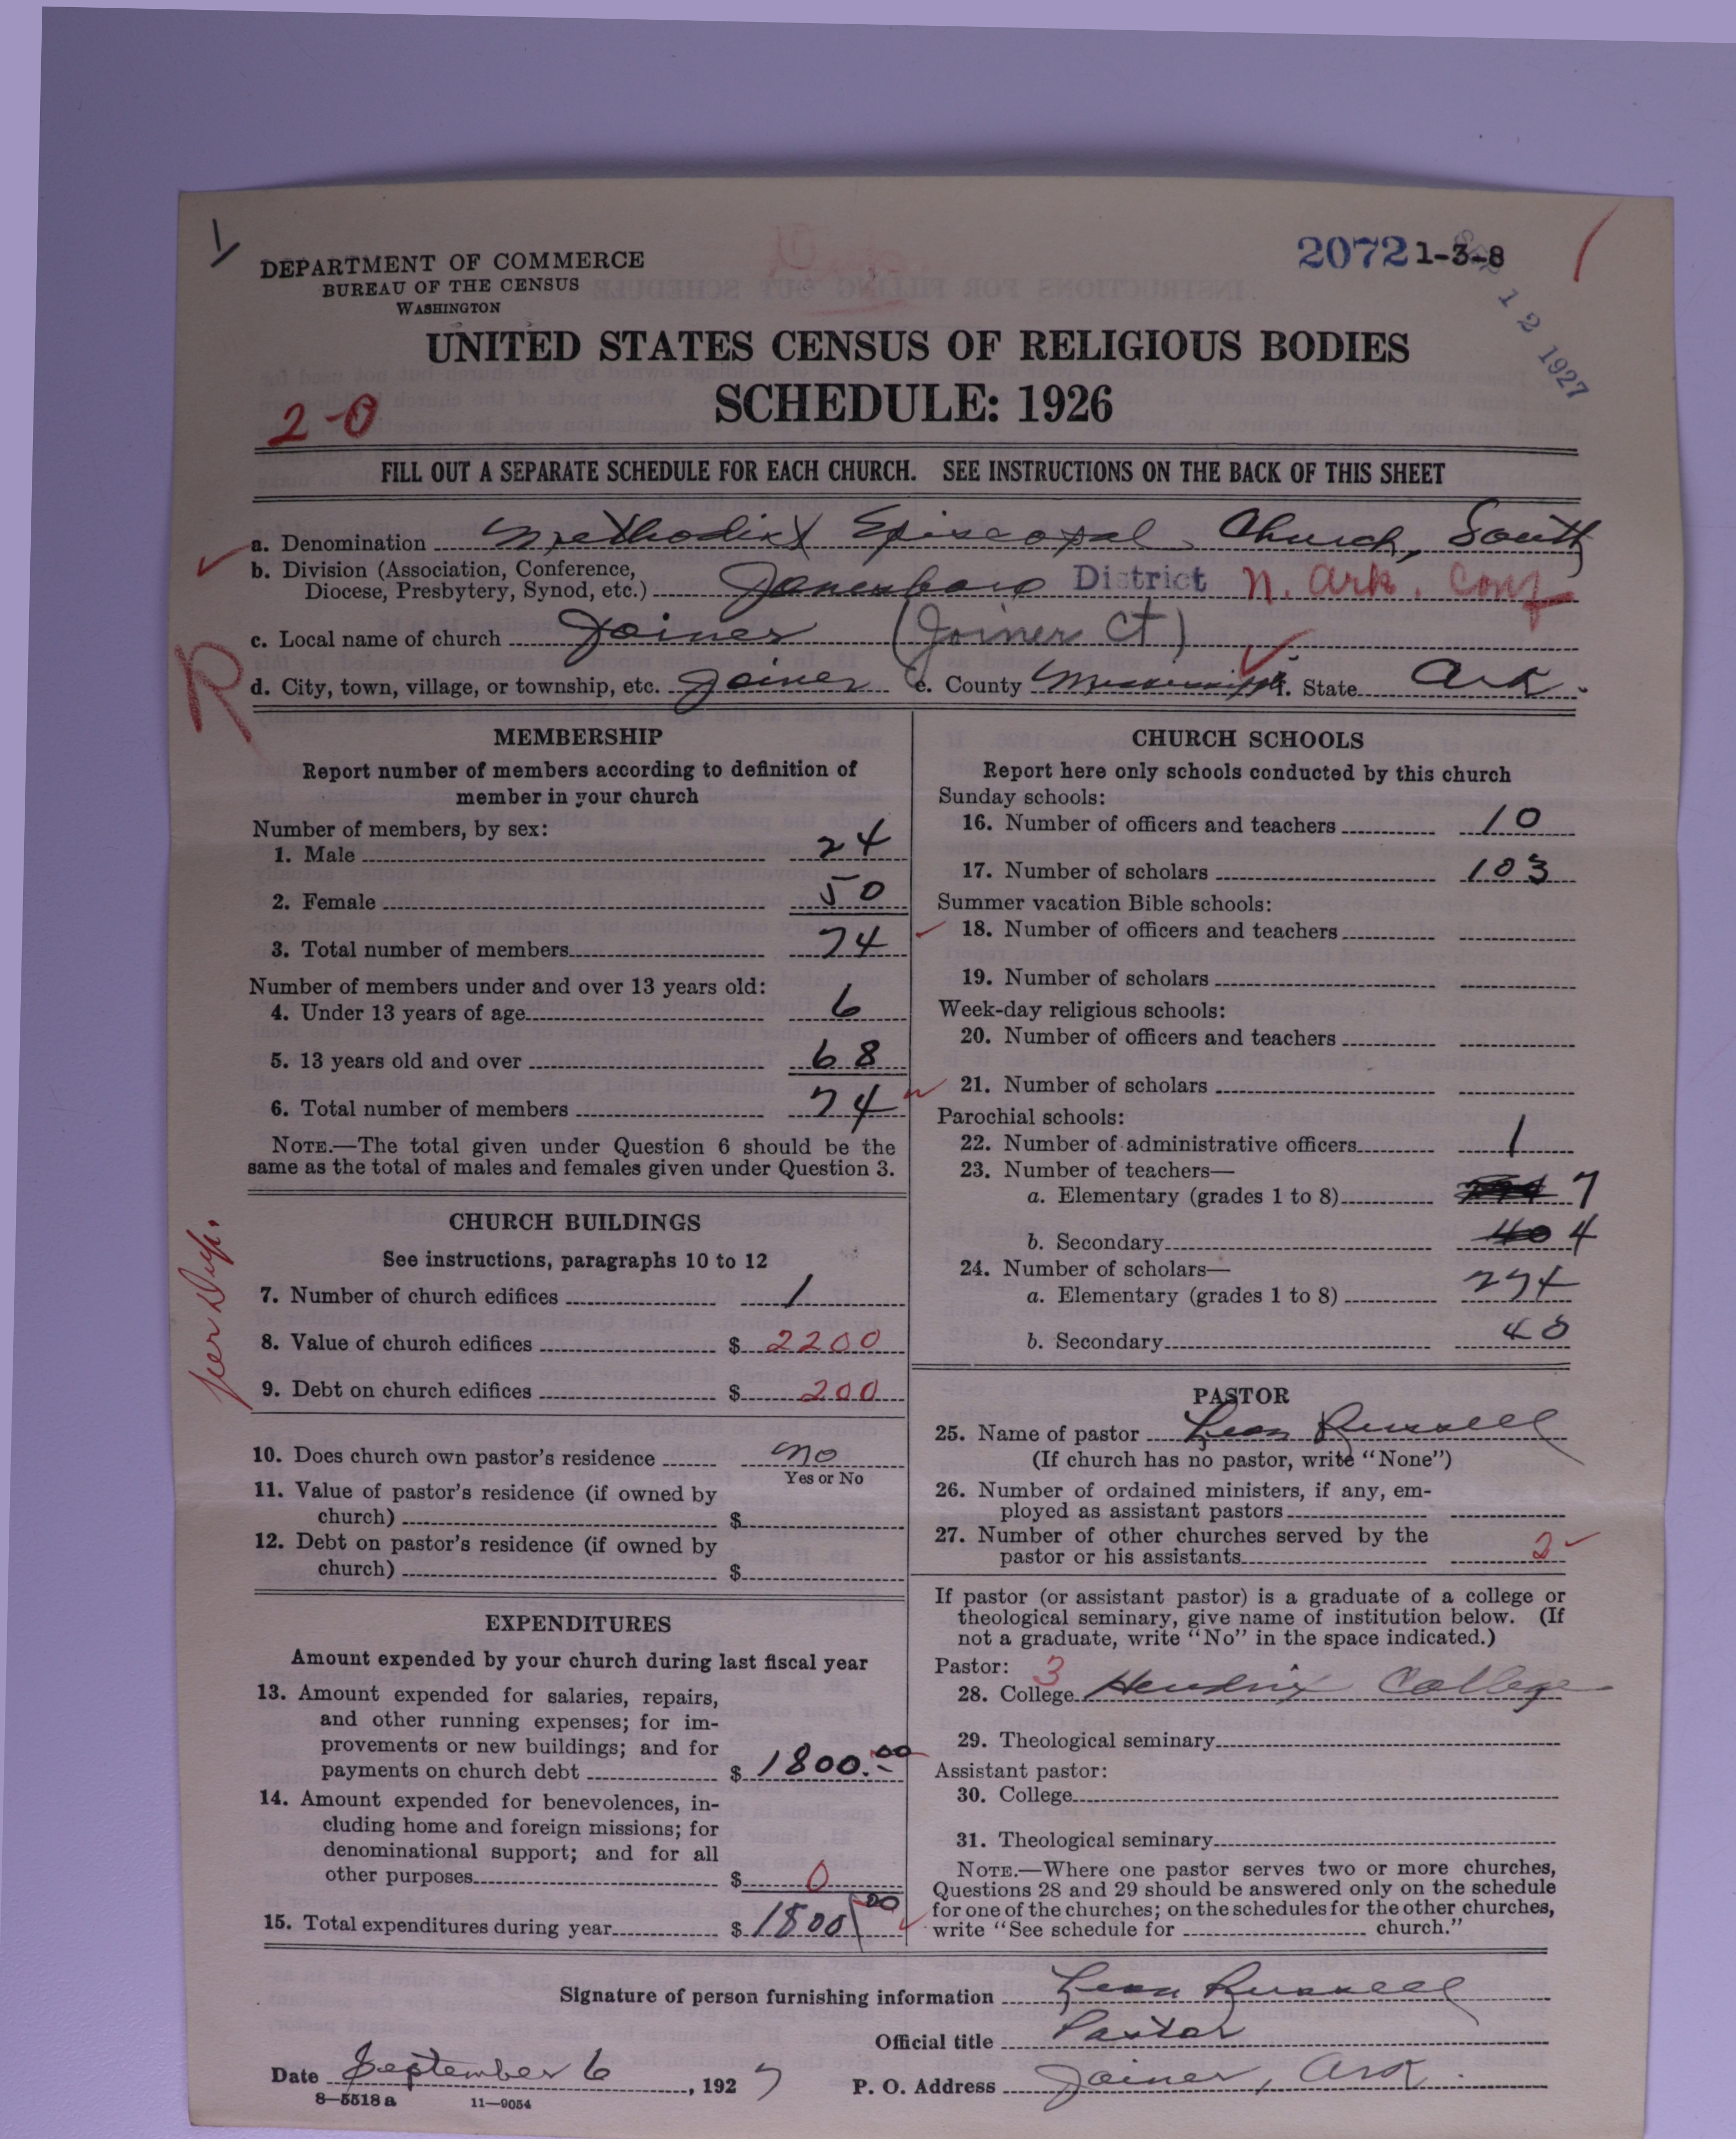 DEPARTMENT OF COMMERCE
BUREAU OF THE CENSUS
WASHINGTON
2072 1-3-8
12 1927
UNITED STATES CENSUS OF RELIGIOUS BODIES
SCHEDULE: 1926
2-0
FILL OUT A SEPARATE SCHEDULE FOR EACH CHURCH. SEE INSTRUCTIONS ON THE BACK OF THIS SHEET
a. Denomination Methodist Episcopal Church, South
b. Division (Association, Conference,
Diocese, Presbytery, Synod, etc.) Jonesboro District N. Ark. Conf
c. Local name of church Joiner (Joiner Ct)
d. City, town, village, or township, etc. Joiner e. County Mississippi f. State Ark.
R
MEMBERSHIP
Report number of members according to definition of
member in your church
Number of members, by sex:
1. Male 24
2. Female 50
3. Total number of members 74
Number of members under and over 13 years old:
4. Under 13 years of age 6
5. 13 years old and over 68
6. Total number of members 74
NOTE.—The total given under Question 6 should be the
same as the total of males and females given under Question 3.
CHURCH BUILDINGS
See instructions, paragraphs 10 to 12
7. Number of church edifices 1
8. Value of church edifices $ 2200
9. Debt on church edifices $ 200
10. Does church own pastor's residence no
Yes or No
11. Value of pastor's residence (if owned by
church) $
12. Debt on pastor's residence (if owned by
church) $
EXPENDITURES
Amount expended by your church during last fiscal year
13. Amount expended for salaries, repairs,
and other running expenses; for im-
provements or new buildings; and for
payments on church debt $ 1800.00
14. Amount expended for benevolences, in-
cluding home and foreign missions; for
denominational support; and for all
other purposes $ 0
15. Total expenditures during year $ 1800 00
CHURCH SCHOOLS
Report here only schools conducted by this church
Sunday schools:
16. Number of officers and teachers 10
17. Number of scholars 103
Summer vacation Bible schools:
18. Number of officers and teachers
19. Number of scholars
Week-day religious schools:
20. Number of officers and teachers
21. Number of scholars
Parochial schools:
22. Number of administrative officers 1
23. Number of teachers—
a. Elementary (grades 1 to 8) 7
b. Secondary 40 4
24. Number of scholars—
a. Elementary (grades 1 to 8) 274
b. Secondary 40
PASTOR
25. Name of pastor Leon Russell
(If church has no pastor, write "None")
26. Number of ordained ministers, if any, em-
ployed as assistant pastors
27. Number of other churches served by the
pastor or his assistants 2
If pastor (or assistant pastor) is a graduate of a college or
theological seminary, give name of institution below. (If
not a graduate, write "No" in the space indicated.)
Pastor: 3
28. College Hendrix College
29. Theological seminary
Assistant pastor:
30. College
31. Theological seminary
NOTE.—Where one pastor serves two or more churches,
Questions 28 and 29 should be answered only on the schedule
for one of the churches; on the schedules for the other churches,
write "See schedule for church."
Signature of person furnishing information Leon Russell
Official title Pastor
Date September 6, 1927 P. O. Address Joiner, Ark.
8—5518 a 11—9054